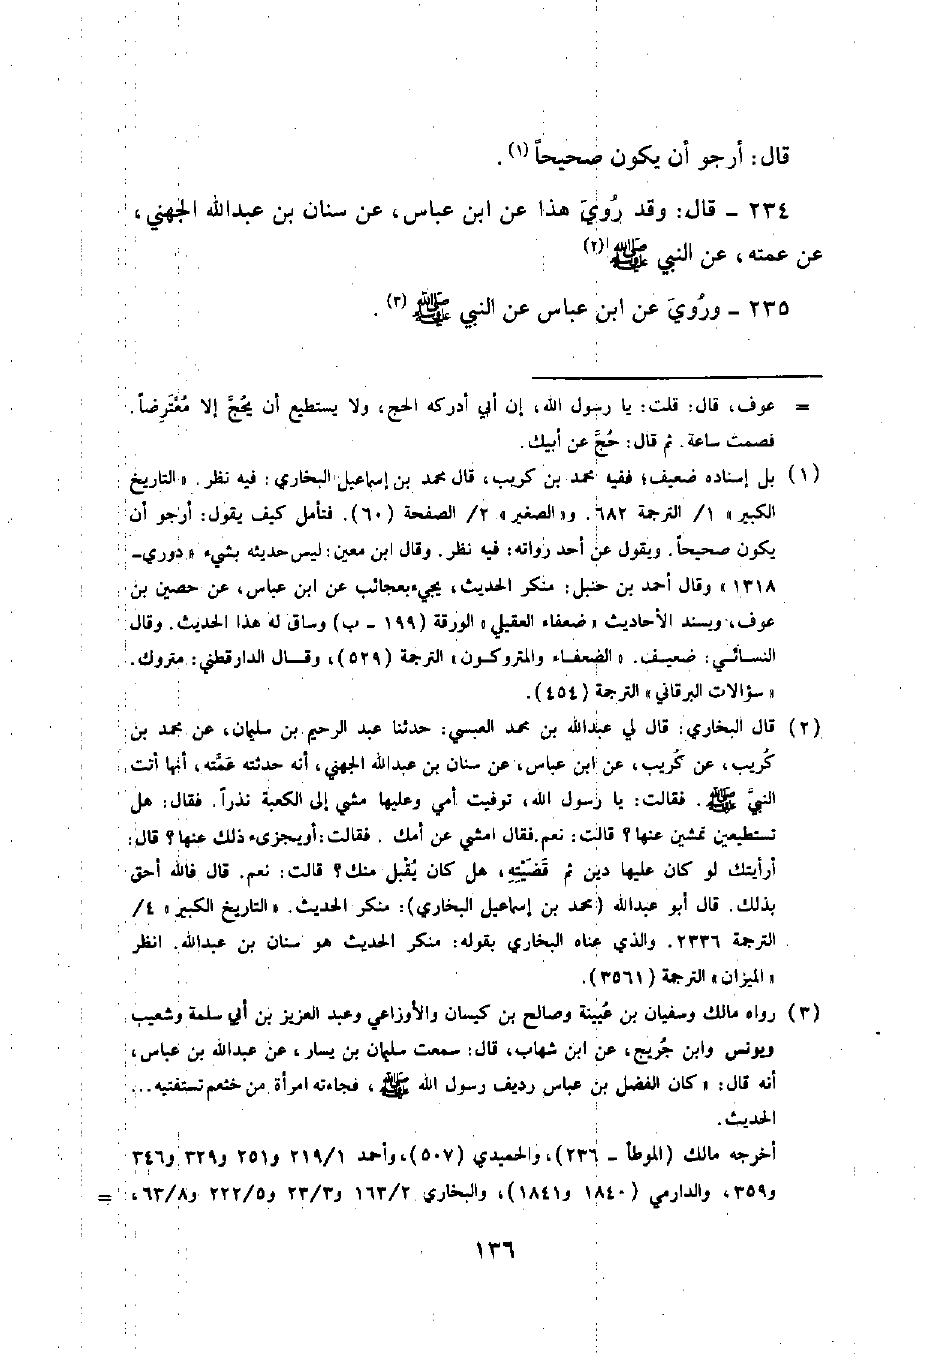 قال: أرجو أن يكون صحيحاً (١) .
٢٣٤ ـ قال: وقد رُويَ هذا عن ابن عباس، عن سنان بن عبدالله الجهني،
عن عمته، عن النبي ﷺ (٢)
٢٣٥ ـ ورُويَ عن ابن عباس عن النبي ﷺ (٣) .
= عوف، قال: قلت: يا رسول الله، إن أبي أدركه الحج، ولا يستطيع أن يَحُجَّ إلا مُعْتَرِضاً.
فصمت ساعة. ثم قال: حُجَّ عن أبيك.
(١) بل إسناده ضعيف؛ ففيه محمد بن كريب، قال محمد بن إسماعيل البخاري: فيه نظر. «التاريخ
الكبير» ١/ الترجمة ٦٨٢. و«الصغير» ٢/ الصفحة (٦٠). فتأمل كيف يقول: أرجو أن
يكون صحيحاً. ويقول عن أحد رواته: فيه نظر. وقال ابن معين: ليس حديثه بشيء «دوري ـ
١٣١٨» وقال أحمد بن حنبل: منكر الحديث، يجيء بعجائب عن ابن عباس، عن حصين بن
عوف، ويسند الأحاديث «ضعفاء العقيلي» الورقة (١٩٩ ـ ب) وساق له هذا الحديث. وقال
النسائي: ضعيف. «الضعفاء والمتروكون» الترجمة (٥٢٩)، وقال الدارقطني: متروك.
«سؤالات البرقاني» الترجمة (٤٥٤).
(٢) قال البخاري: قال لي عبدالله بن محمد العبسي: حدثنا عبد الرحيم بن سليمان، عن محمد بن
كُريب، عن كُريب، عن ابن عباس، عن سنان بن عبدالله الجهني، أنه حدثته عَمَّته، أنها أتت
النبيَّ ﷺ. فقالت: يا رسول الله، توفيت أمي وعليها مشي إلى الكعبة نذراً. فقال: هل
تستطيعين تمشين عنها؟ قالت: نعم. فقال امشي عن أمك. فقالت: أو يجزىء ذلك عنها؟ قال:
أرأيتك لو كان عليها دين ثم قَضَيْتِهِ، هل كان يُقْبل منك؟ قالت: نعم. قال فالله أحق
بذلك. قال أبو عبدالله (محمد بن إسماعيل البخاري): منكر الحديث. «التاريخ الكبير» ٤/
الترجمة ٢٣٣٦. والذي عناه البخاري بقوله: منكر الحديث هو سنان بن عبدالله. انظر
«الميزان» الترجمة (٣٥٦١).
(٣) رواه مالك وسفيان بن عُيينة وصالح بن كيسان والأوزاعي وعبد العزيز بن أبي سلمة وشعيب
ويونس وابن جُريج، عن ابن شهاب، قال: سمعت سليمان بن يسار، عن عبدالله بن عباس،
أنه قال: «كان الفضل بن عباس رديف رسول الله ﷺ، فجاءته امرأة من خثعم تستفتيه...
الحديث.
أخرجه مالك (الموطأ ـ ٢٣٦)، والحميدي (٥٠٧)، وأحمد ٢١٩/١ و٢٥١ و٣٢٩ و٣٤٦
و٣٥٩، والدارمي (١٨٤٠ و١٨٤١)، والبخاري ١٦٣/٢ و٢٣/٣ و٢٢٢/٥ و٦٣/٨، =
١٣٦